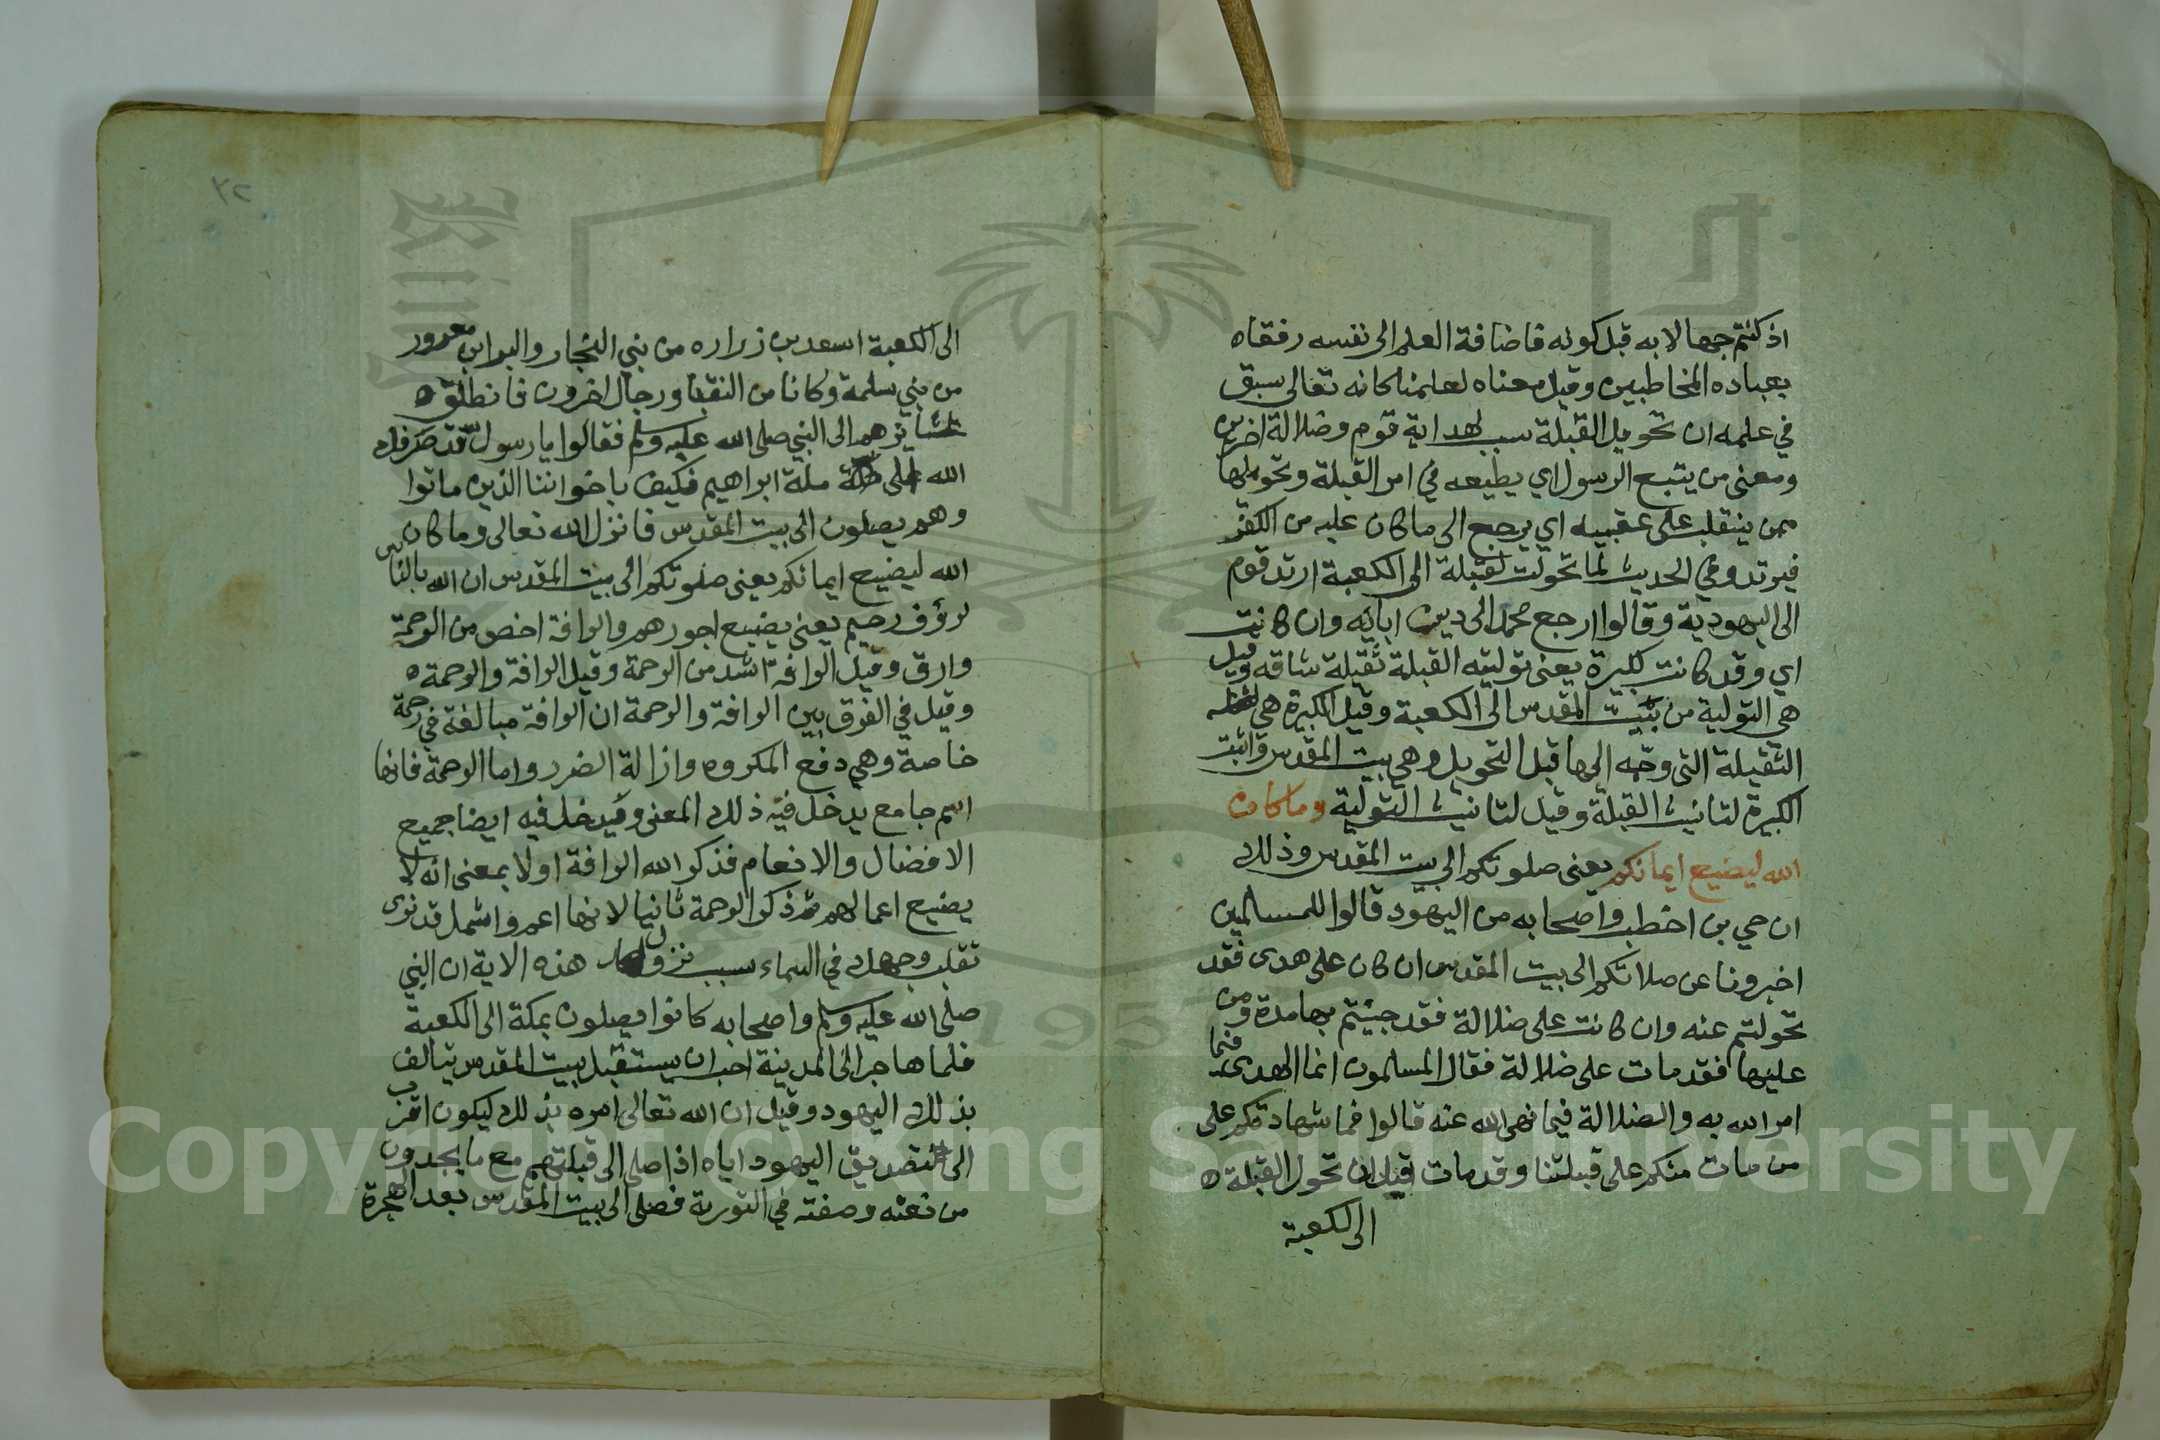 اذ كنتم جهالا به قبل كونه فاضافة العلم الى نفسه رفقاه
بعباده المخاطبين وقيل معناه لعلمنا كانه تعالى سبق
في علمه ان تحويل القبلة سبب لهداية قوم وضلالة اخرين
ومعنى من يتبع الرسول اي يطيعه في امر القبلة وتحويلها
ممن ينقلب على عقبيه اي يرجع الى ما كان عليه من الكفر
فيرتد وفي الحديث لما تحولت القبلة الى الكعبة ارتد قوم
الى اليهودية وقالوا ارجع محمد الى دين ابائه وان كانت
اي وقد كانت لكبيرة يعنى توليته القبلة ثقيلة شاقه وقيل
هي التولية من بيت المقدس الى الكعبة وقيل الكبيرة هي
الثقيلة التي وجه اليها قبل التحويل وهي بيت المقدس وانث
الكبيرة لتانيث القبلة وقيل لتانيث التولية وما كان
الله ليضيع ايمانكم يعنى صلوتكم الى بيت المقدس وذلك
ان حي بن اخطب واصحابه من اليهود قالوا للمسلمين
اخبرونا عن صلاتكم الى بيت المقدس ان كان على هدى فقد
تحولتم عنه وان كانت على ضلالة فقد جيئتم بها مدة ومن
عليها فقد مات على ضلالة فقال المسلمون انما الهدى فيما
امر الله به والضلالة فيما نهى الله عنه قالوا فما شهادتكم على
من مات منكم على قبلتنا وقد مات قبل ان تحول القبلة ه
الى الكعبة
٣٢
الى الكعبة اسعد بن زراره من بني النجار والبرا بن معرور
من بني سلمة وكانا من النقبا ورجال اخرون فانطلق ه
عشايرهم الى النبي صلى الله عليه وسلم فقالوا يا رسول الله قد صرفك
الله الى ملة ابراهيم فكيف باخواننا الذين ماتوا
وهم يصلون الى بيت المقدس فانزل الله تعالى وما كان
الله ليضيع ايمانكم يعنى صلوتكم الى بيت المقدس ان الله بالناس
لرؤف رحيم يعنى يضيع اجورهم والرافة اخص من الرحمة
وارق وقيل الرافة اشد من الرحمة وقيل الرافة والرحمة ه
وقيل في الفرق بين الرافة والرحمة ان الرافة مبالغة في رحمة
خاصة وهي دفع المكروه وازالة الضرر واما الرحمة فانها
اسم جامع يدخل فيه ذلك المعنى ويدخل فيه ايضا جميع
الافضال والانعام فذكر الله الرافة اولا بمعنى انه لا
يضيع اعمالهم ثم ذكر الرحمة ثانيا لانها اعم واشمل قد نرى
تقلب وجهك في السماء سبب نزول هذه الاية ان النبي
صلى الله عليه وسلم واصحابه كانوا يصلون بمكة الى الكعبة
فلما هاجر الى المدينة احب ان يستقبل بيت المقدس يتالف
بذلك اليهود وقيل ان الله تعالى امره بذلك ليكون اقرب
الى تصديق اليهود اياه اذا صلى الى قبلتهم مع ما يجدون
من نعته وصفته في التورية فصلى الى بيت المقدس بعد الهجرة
Copyright © King Saud University
1957